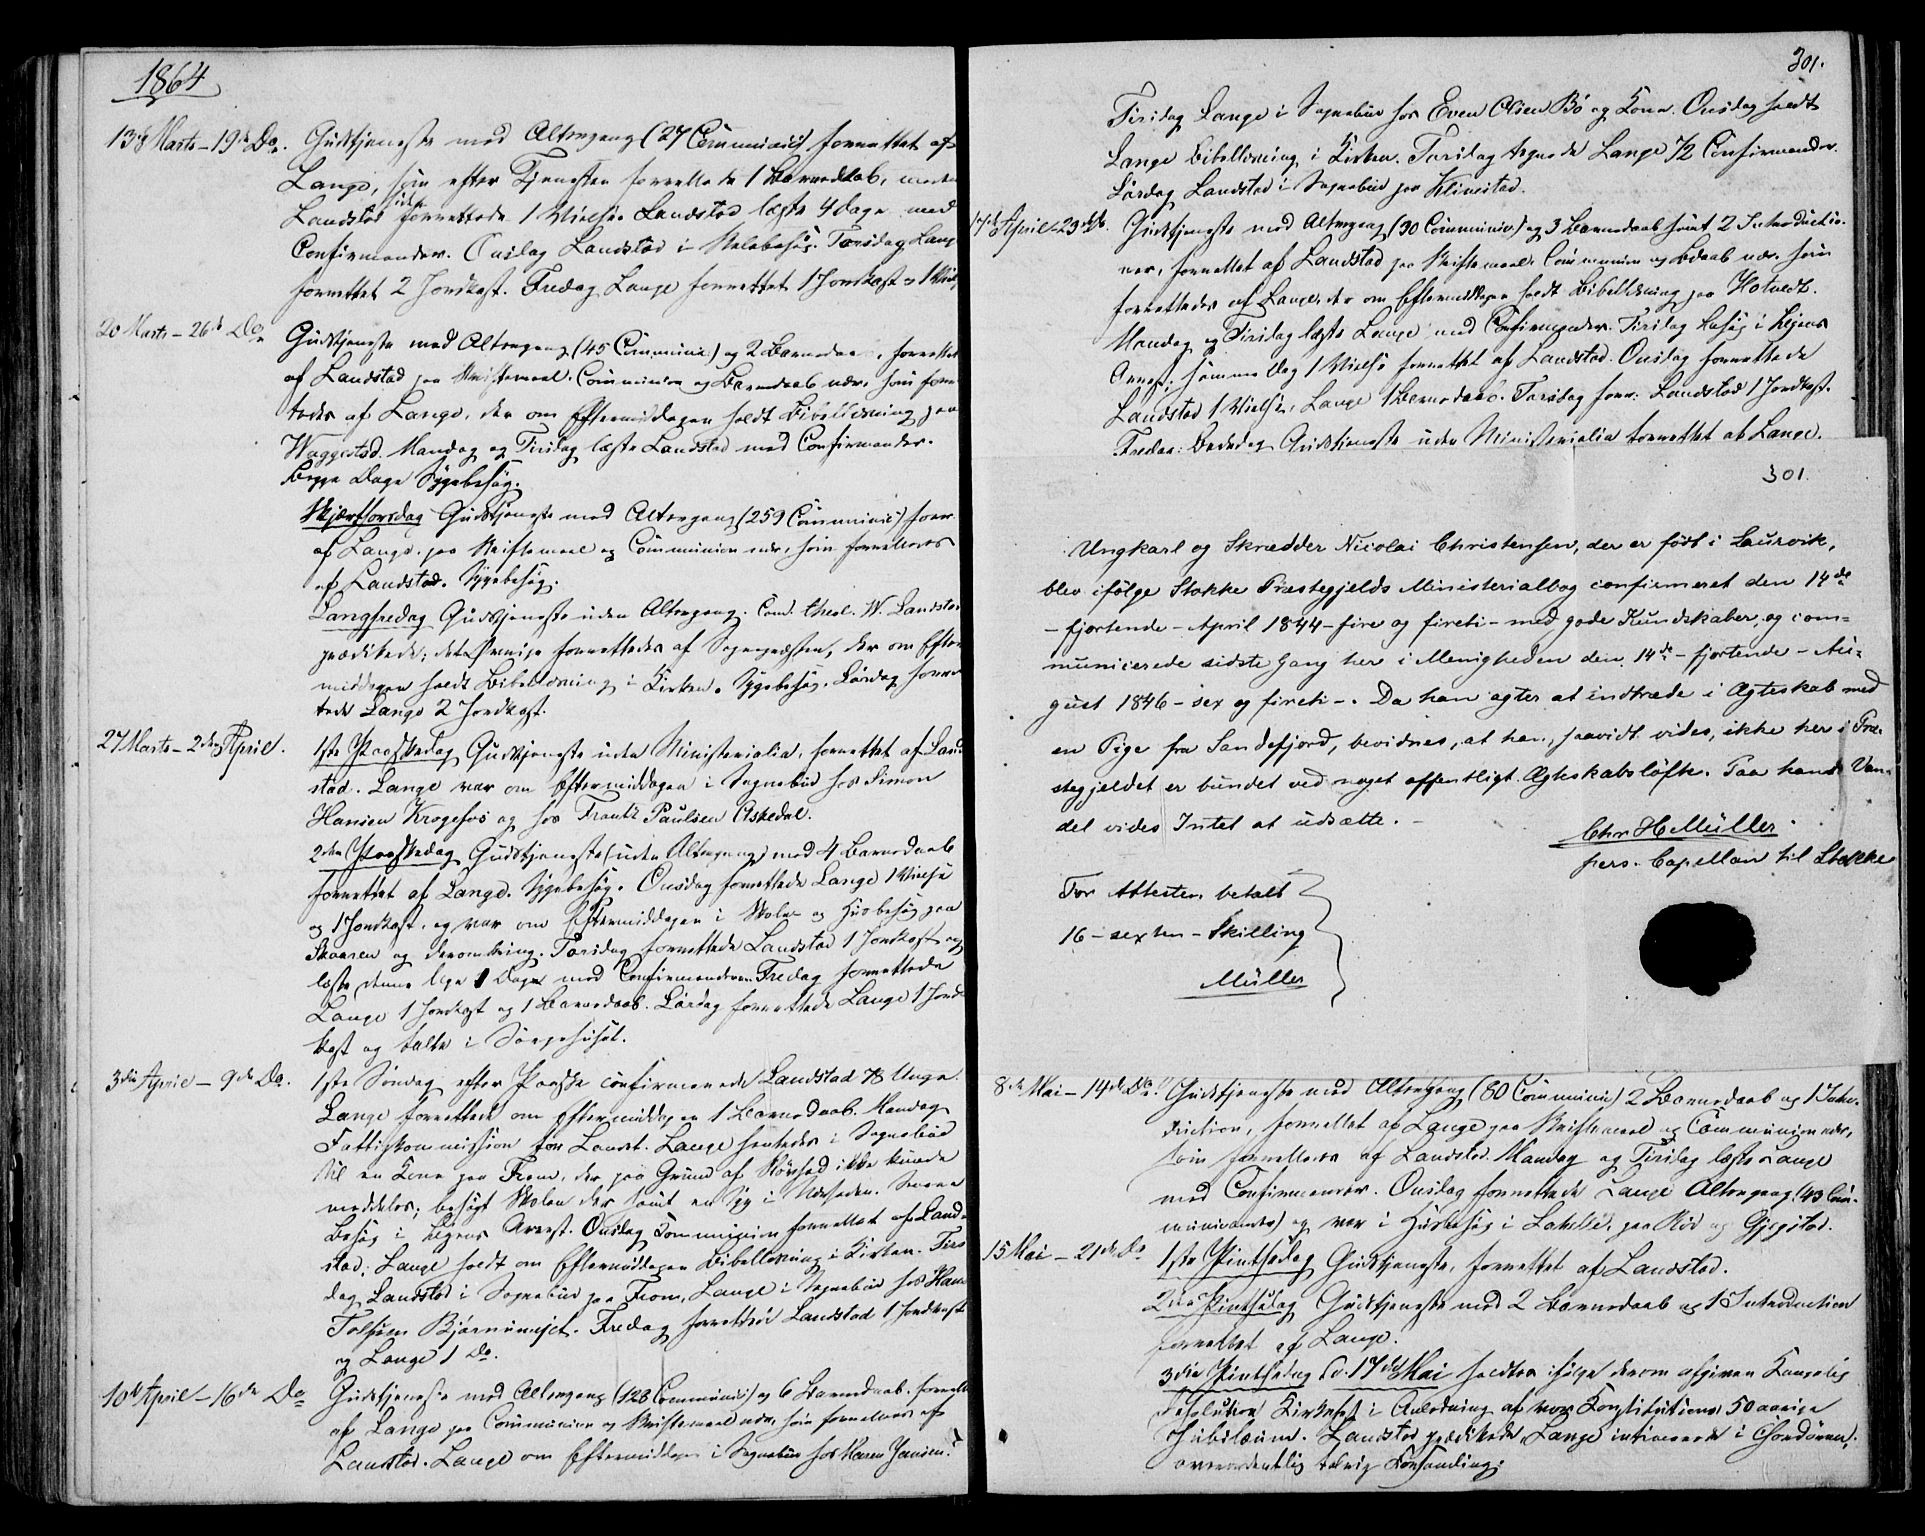 1864
13de Marts – 19de Do. Gudstjeneste med Altergang (27 Communic.) forrettet af
Lange, som efter Tjenesten forrettede 1 Barnedaab, medens
Landstad forrettede 1 Vielse. Landstad læste 4 Dage med
Confirmander. Onsdag Landstad i Torsdag Lange
forrettet 2 Jordkast. Fredag Lange forrettet 1 Jordkast
20 Marts – 26de Do. Gudstjeneste med Altergang (45 Communic.) og 2 Barnedaab, forrettet
af Landstad paa Skriftemaal, Communion og Barnedaab nær, som forret-
tedes af Lange, der om Eftermiddagen holdt Bibellæsning paa
Waggestad. Mandag og Tirsdag læste Landstad med Confirmander.
Begge Dage Sygebesøg.
Skjærthorsdag Gudstjeneste med Altergang (259 Communic.) forr.
af Lange, paa Skriftemaal og Communion nær, som forrettedes
af Landstad. Sygebesøg.
Langfredag Gudstjeneste uden Altergang. Cand. theol. W. Landstad
prædikede; det Øvrige forrettedes af Sognepræsten, der om Efter-
middagen holdt Bibellæsning i Kirken. Sygebesøg. Lørdag forret-
tede Lange 2 Jordkast.
27 Marts – 2den April. 1ste Paaskedag Gudstjeneste uden Ministerialia, forrettet af Land-
stad. Lange var om Eftermiddagen i Sognebud hos Simon
Hansen Krogefos og hos Frantz Paulsen Askedal.
2den Paaskedag Gudstjeneste (uden Altergang) med 4 Barnedaab
forrettet af Lange. Sygebesøg. Onsdag forrettede Lange 1 Vielse
og 1 Jordkast, og var om Eftermiddagen i Skole og Huusbesøg paa
Skaaren og deromkring. Torsdag forrettede Landstad 1 Jordkast og
læste denne Uge 1 Dage med Confirmanderne. Fredag forrettede
Lange 1 Jordkast og 1 Barnedaab. Lørdag forrettede Lange 1 Jord-
kast og talte i Sørgehuset.
3die April – 9de Do. 1ste Søndag efter Paaske confirmerede Landstad 78 Unge.
Lange forrettede om Eftermiddagen 1 Barnedaab. Mandag
Fattigkommission for Landst. Lange hentedes i Sognebud
til en Kone paa From, der paa Grund af Sløvhed ikke kunde
meddeles; besøgt Skolen der samt en Syg i Nærheden. Senere
Besøg i Byens Arrest. Onsdag Communion forrettet af Land-
stad; Lange holdt om Eftermiddagen Bibellæsning i Kirken. Tors-
dag Landstad i Sognebud paa From, Lange i Sognebud hos Hans
Tolfsen Bjørnemyr. Fredag forrettede Landstad 1 Jordkast
og Lange 1 Do.
10de April – 16de Do. Gudstjeneste med Altergang (128 Communic.) og 6 Barnedaab, forrettet
af Lange paa Communion og Skriftemaal nær, som forrettedes af
Landstad. Lange om Eftermiddagen i Sognebud hos Maren Jensen.
301.
Tirsdag Lange i Sognebud hos Even Olsen Bö og Kone. Onsdag holdt
Lange Bibellæsning i Kirken. Torsdag tegnede Lange 72 Confirmander.
Lørdag Landstad i Sognebud paa Klinestad.
17de April – 23de Do. Gudstjeneste med Altergang (30 Communic.) og 3 Barnedaab samt 2 Introductio-
ner, forrettet af Landstad paa Skriftemaal, Communion og Daab nær, som
forrettedes af Lange, der om Eftermiddagen holdt Bibellæsning paa Hotvedt.
Mandag og Tirsdag læste Lange med Confirmander. Tirsdag Besøg i Byens
Arrest; samme Dag 1 Vielse forrettet af Landstad. Onsdag forrettede
Landstad 1 Vielse, Lange 1 Barnedaab. Torsdag forr. Landstad 1 Jordkast.
Fredag: Bededag Gudstjeneste uden Ministerialia forrettet af Lange.
301.
Ungkarl og Skrædder Nicolai Christensen, der er født i Laurvik,
blev ifølge Stokke Præstegjelds Ministerialbog confirmeret den 14de
– fjortende – April 1844 – fire og firti – med gode Kundskaber, og com=
municerede sidste Gang her i Menigheden den 14de – fjortende – Au=
gust 1846 – sex og firti –. Da han agter at indtræde i Ægteskab med
en Pige fra Sandefjord, bevidnes, at han, saavidt vides, ikke her i Præ-
stegjeldet er bundet ved noget offentligt Ægteskabsløfte. Paa hans Van-
del vides Intet at udsætte. –
Chr H Müller.
pers. Capellan til Stokke
For Attesten betalt
16 – sexten – Skilling
Müller
8de Mai – 14de Do. Gudstjeneste med Altergang (80 Communic.) 2 Barnedaab og 1 Intro-
duction, forrettet af Lange paa Skriftemaal og Communion nær,
som forrettedes af Landstad. Mandag og Tirsdag læste Lange
med Confirmander. Onsdag forrettede Lange Altergang (43 Com-
municanter) og var i Huusbesøg i paa og Gjegstad.
15 Mai – 21de Do. 1ste Pintsedag Gudstjeneste, forrettet af Landstad.
2den Pintsedag Gudstjeneste med 2 Barnedaab og 1 Introduction
forrettet af Lange.
3die Pintsedag d. 17de Mai holdtes ifølge derom afgiven Kongelig
Resolution Kirkefest i Anledning af vor Konstitutions 50 aarige
Jubilæum. Landstad prædikede, Lange intonerede i Chordøren;
overordentlig talrig Forsamling.